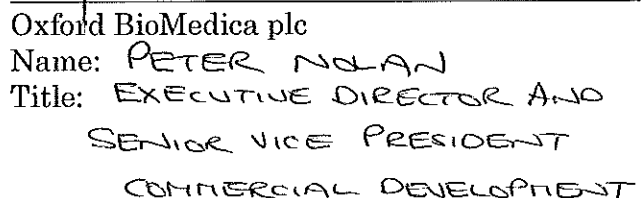 Oxford BioMedica plc
Name: PETER NOLAN
Title: EXECUTIVE DIRECTOR AND
SENIOR VICE PRESIDENT
COMMERCIAL DEVELOPMENT